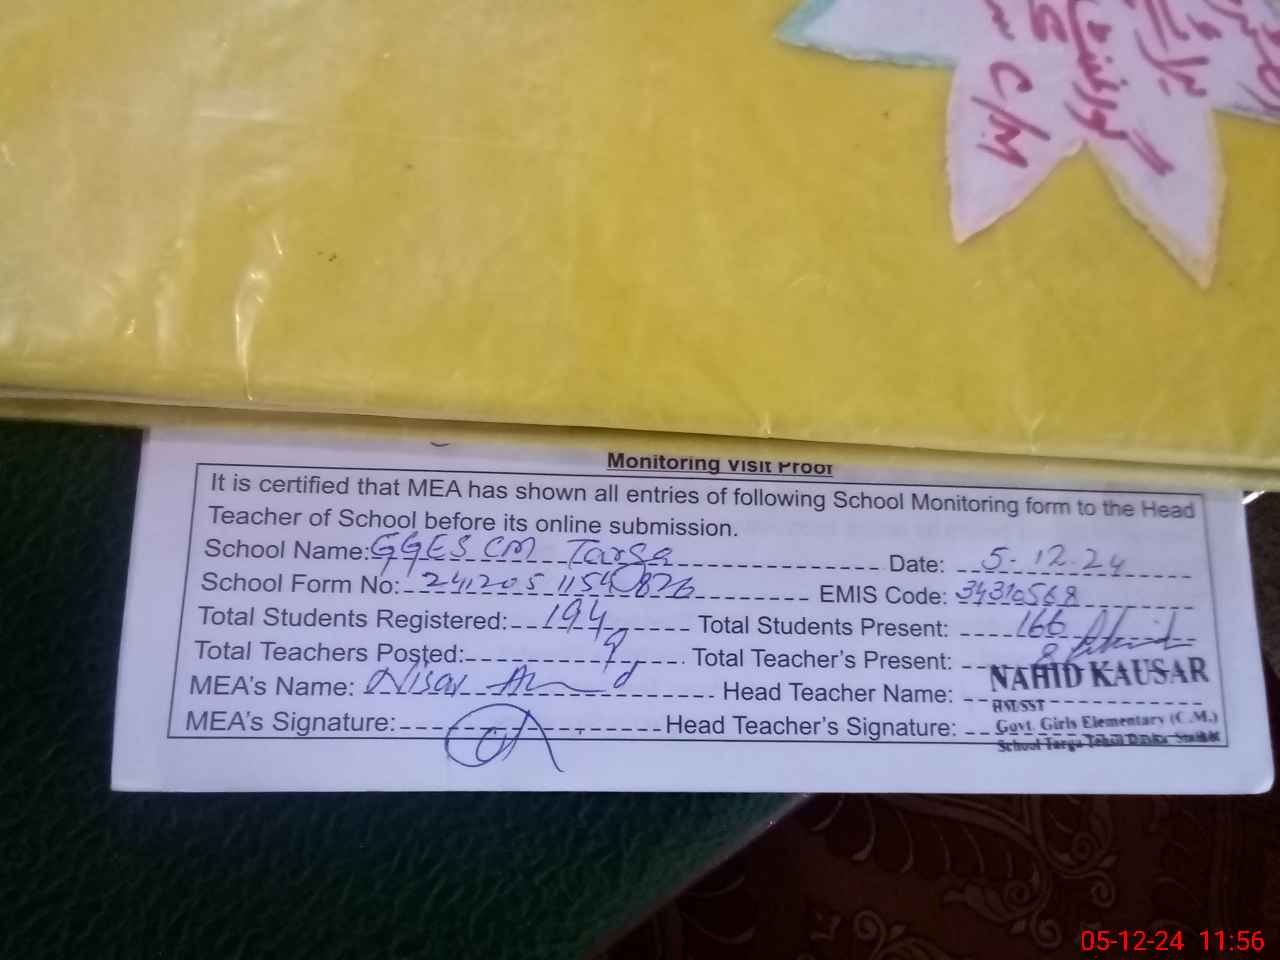 گورنمنٹ
برائے
C/M
Monitoring Visit Proof
It is certified that MEA has shown all entries of following School Monitoring form to the Head
Teacher of School before its online submission.
School Name: GGES CM Targa Date: 5-12-24
School Form No: 2412051154826 EMIS Code: 34310568
Total Students Registered: 194 Total Students Present: 166
Total Teachers Posted: 9 Total Teacher's Present: 8
MEA's Name: Nisar Head Teacher Name: NAHID KAUSAR
HM/SST
MEA's Signature: Head Teacher's Signature: Govt. Girls Elementary (C.M.)
School Targa Tehsil
05-12-24 11:56